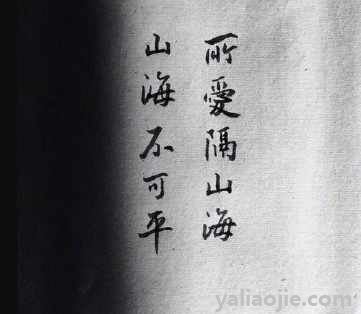 所愛隔山海
山海不可平
yaliaojie.com